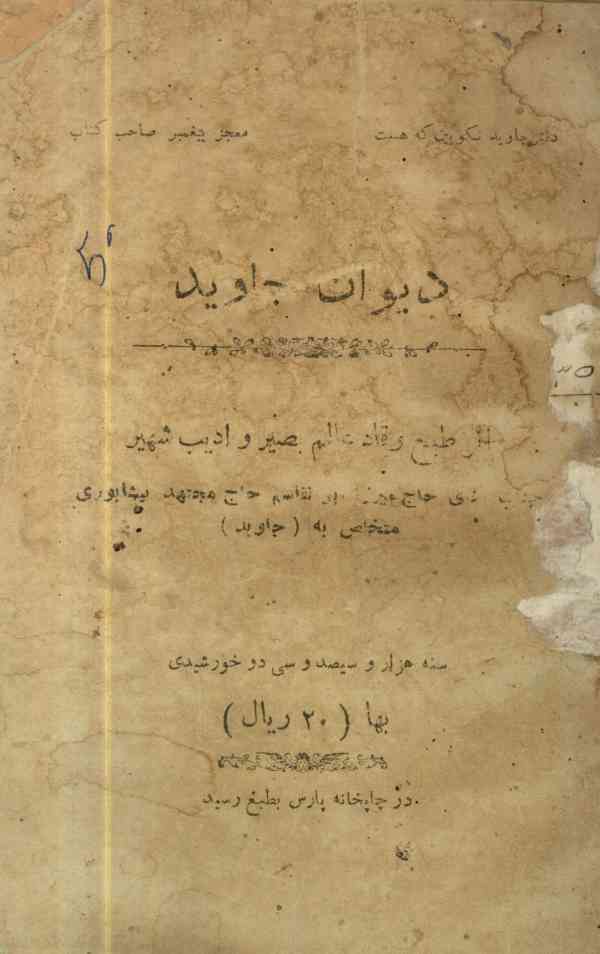 دفتر جاوید نکوبین که هست معجز پیغمبر صاحب کتاب
دیوان جاوید
اثر طبع وقاد عالم بصیر و ادیب شهیر
جناب حاج میرزا حاج مجتهد
متخلص به ( جاوید )
سنه هزار و سیصد و سی دو خورشیدی
بها ( ۲۰ ریال )
در چاپخانه پارس بطبع رسید